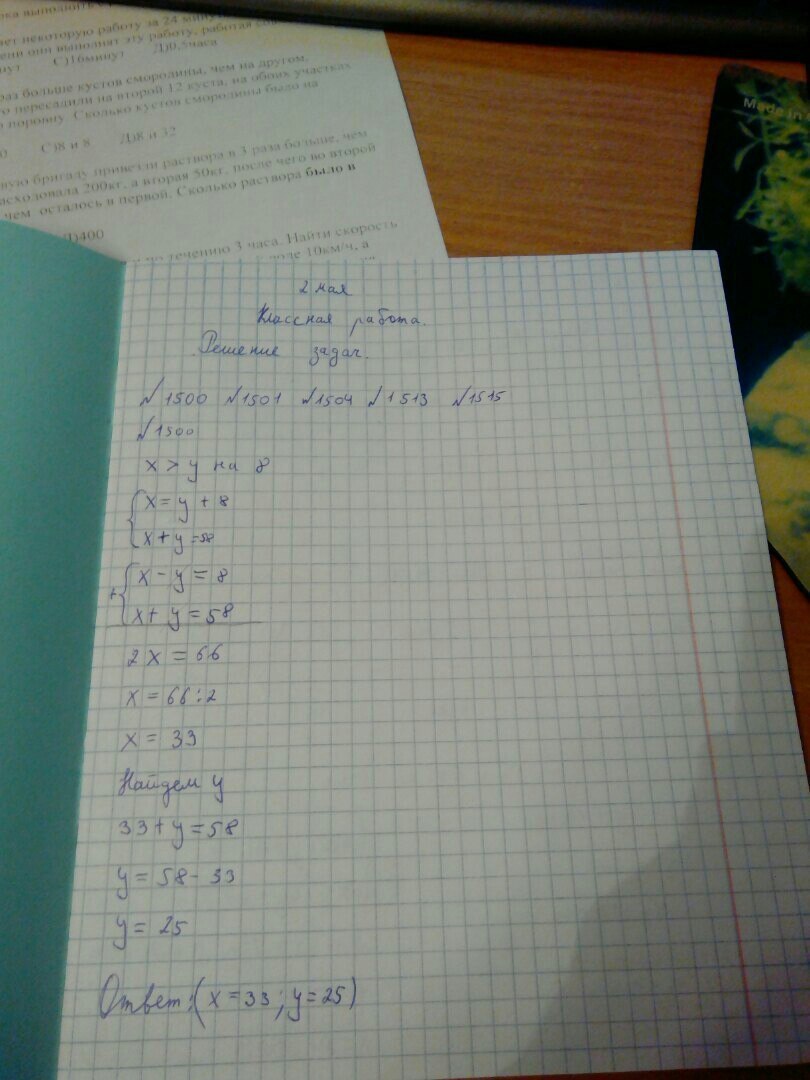 выполнить
некоторую работу за 24
они выполнят эту работу, работая
С)16минут Д)0,5часа
раз больше кустов смородины, чем на другом.
пересадили на второй 12 куста, на обоих участках
поровну. Сколько кустов смородины было на
С)8 и 8 Д)8 и 32
бригаду привезли раствора в 3 раза больше, чем
200кг, а вторая 50кг, после чего во второй
чем осталось в первой. Сколько раствора было в
Д)400
по течению 3 часа. Найти скорость
воде 10км/ч, а
Made in
2 мая
Классная работа.
Решение задач.
№1500 №1501 №1504 №1513 №1515
№1500
x > y на 8
x = y + 8
x + y = 58
x - y = 8
+
x + y = 58
2x = 66
x = 66 : 2
x = 33
Найдем y
33 + y = 58
y = 58 - 33
y = 25
Ответ: (x = 33 ; y = 25)